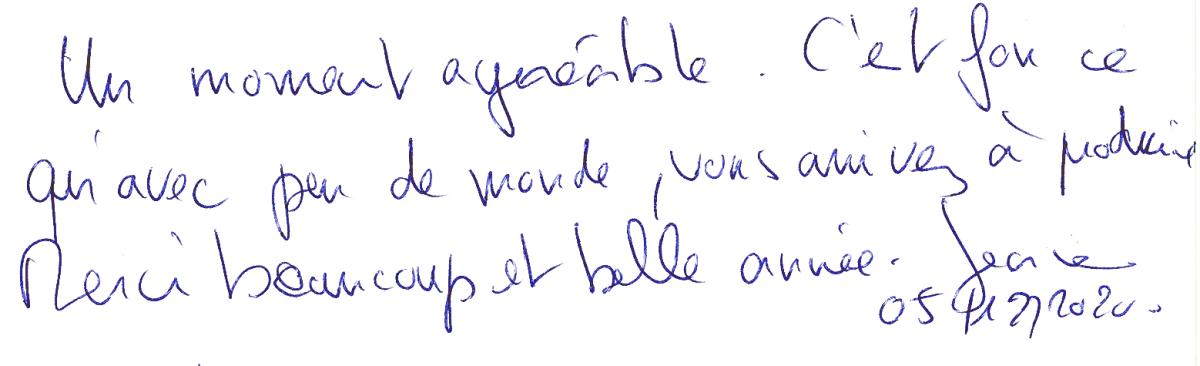 Un moment agréable. C'est fou ce
qu'avec peu de monde, vous arrivez à produire
Merci beaucoup et belle année.
05 2020.